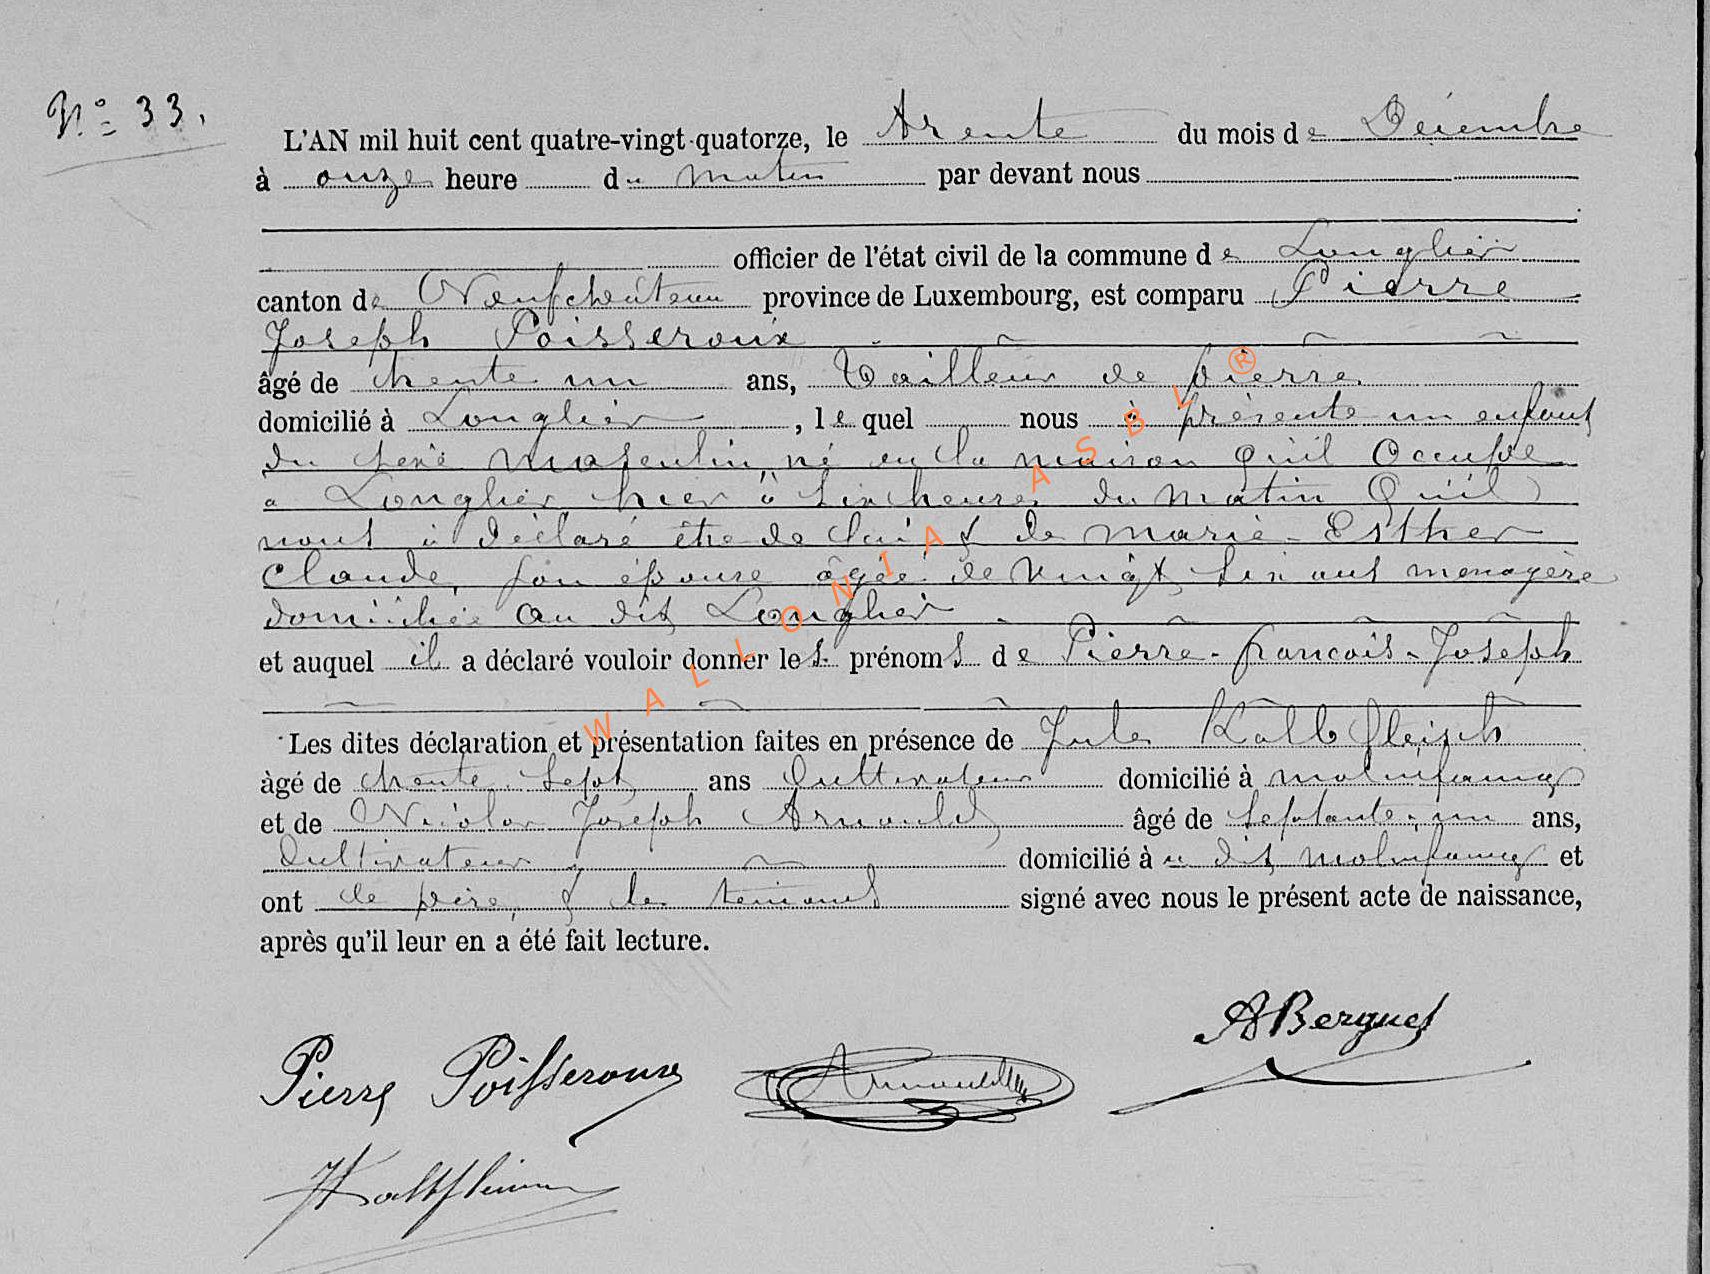 N° 33.
L'AN mil huit cent quatre-vingt-quatorze, le trente du mois de Décembre
à onze heure du matin par devant nous
officier de l'état civil de la commune de Longlier
canton de Neufchâteau province de Luxembourg, est comparu Pierre
Joseph Poisseroux
âgé de trente un ans, Tailleur de pierre
domicilié à Longlier, lequel nous à présenté un enfant
du sexe masculin, né en la maison qu'il occupe
a Longlier, hier à six heures du matin Qu'il
nous à déclaré être de lui & de Marie-Esther
Claude, son épouse âgée de vingt six ans menagère
domiciliée au dit Longlier
et auquel il a déclaré vouloir donner les prénoms de Pierre-françois-Joseph
Les dites déclaration et présentation faites en présence de Jules Kalbfleisch
âgé de trente-sept ans Cultivateur domicilié à molinfaing
et de Nicolas Joseph Arnould âgé de septante-un ans,
Cultivateur domicilié au dit molinfaing et
ont le père, & les témoins signé avec nous le présent acte de naissance,
après qu'il leur en a été fait lecture.
ABerguet
Pierre Poisseroux Arnould
WALLONIA ASBL ®